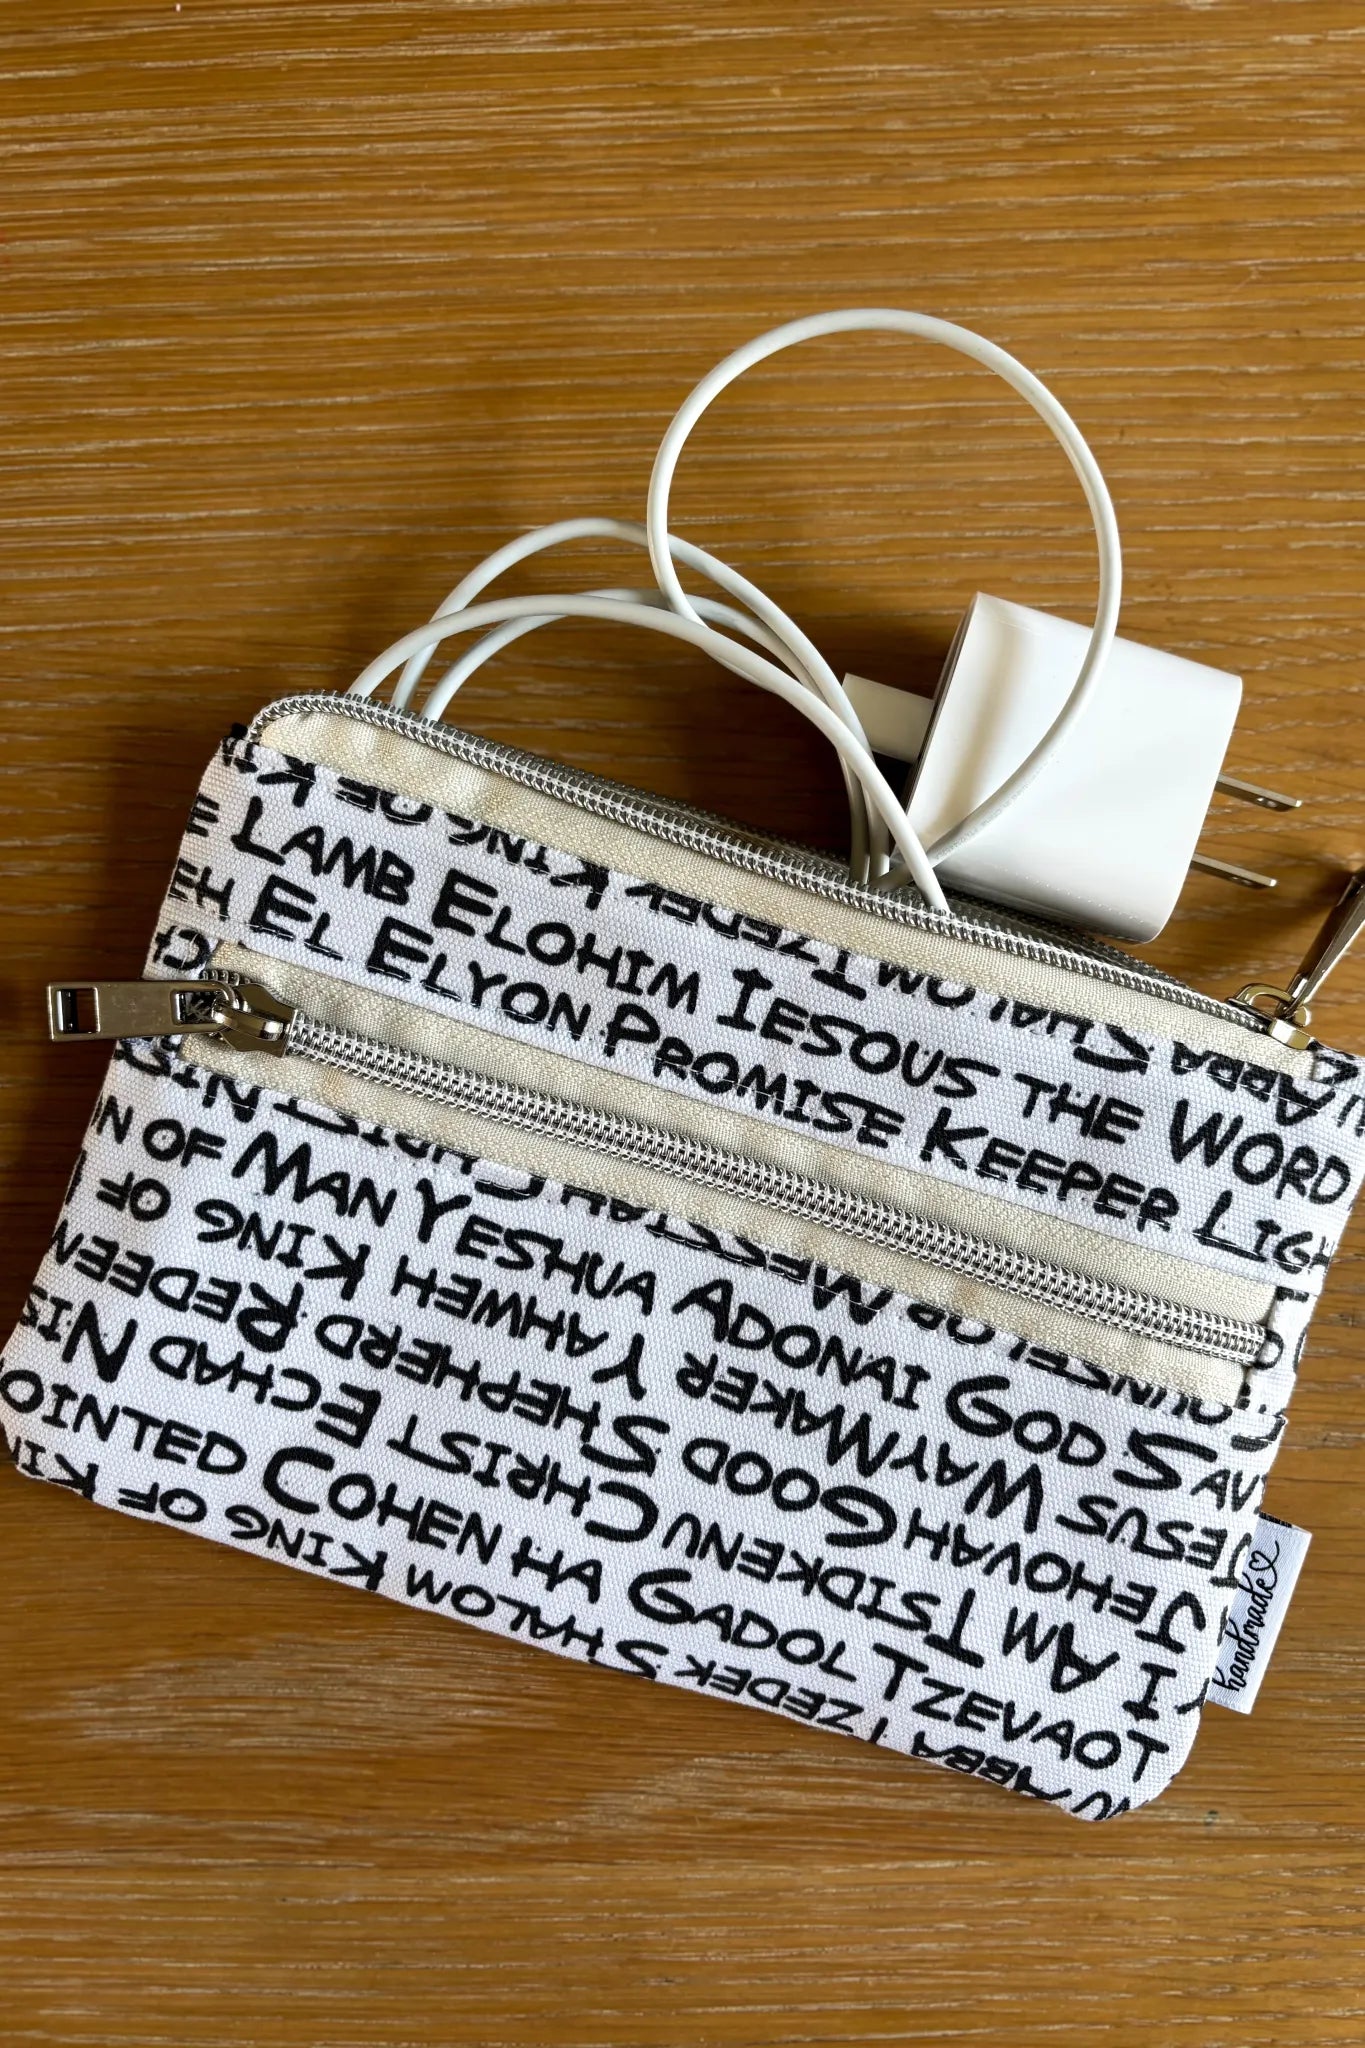 KING OF KI
ABBA SHALOM TZEDEK KING OF K
LAMB ELOHIM IESOUS THE WORD
EH EL ELYON PROMISE KEEPER LIG
MESSIAH CHRIST
OF MAN YESHUA ADONAI GOD SAV
JESUS WAY MAKER YAHWEH KING OF
JEHOVAH GOOD SHEPHERD REDEEM
I AM TSIDKENU CHRIST ECHAD NIS
OINTED COHEN HA GADOL TZEVAOT
ABBA TZEDEK SHALOM KING OF KI
handmade